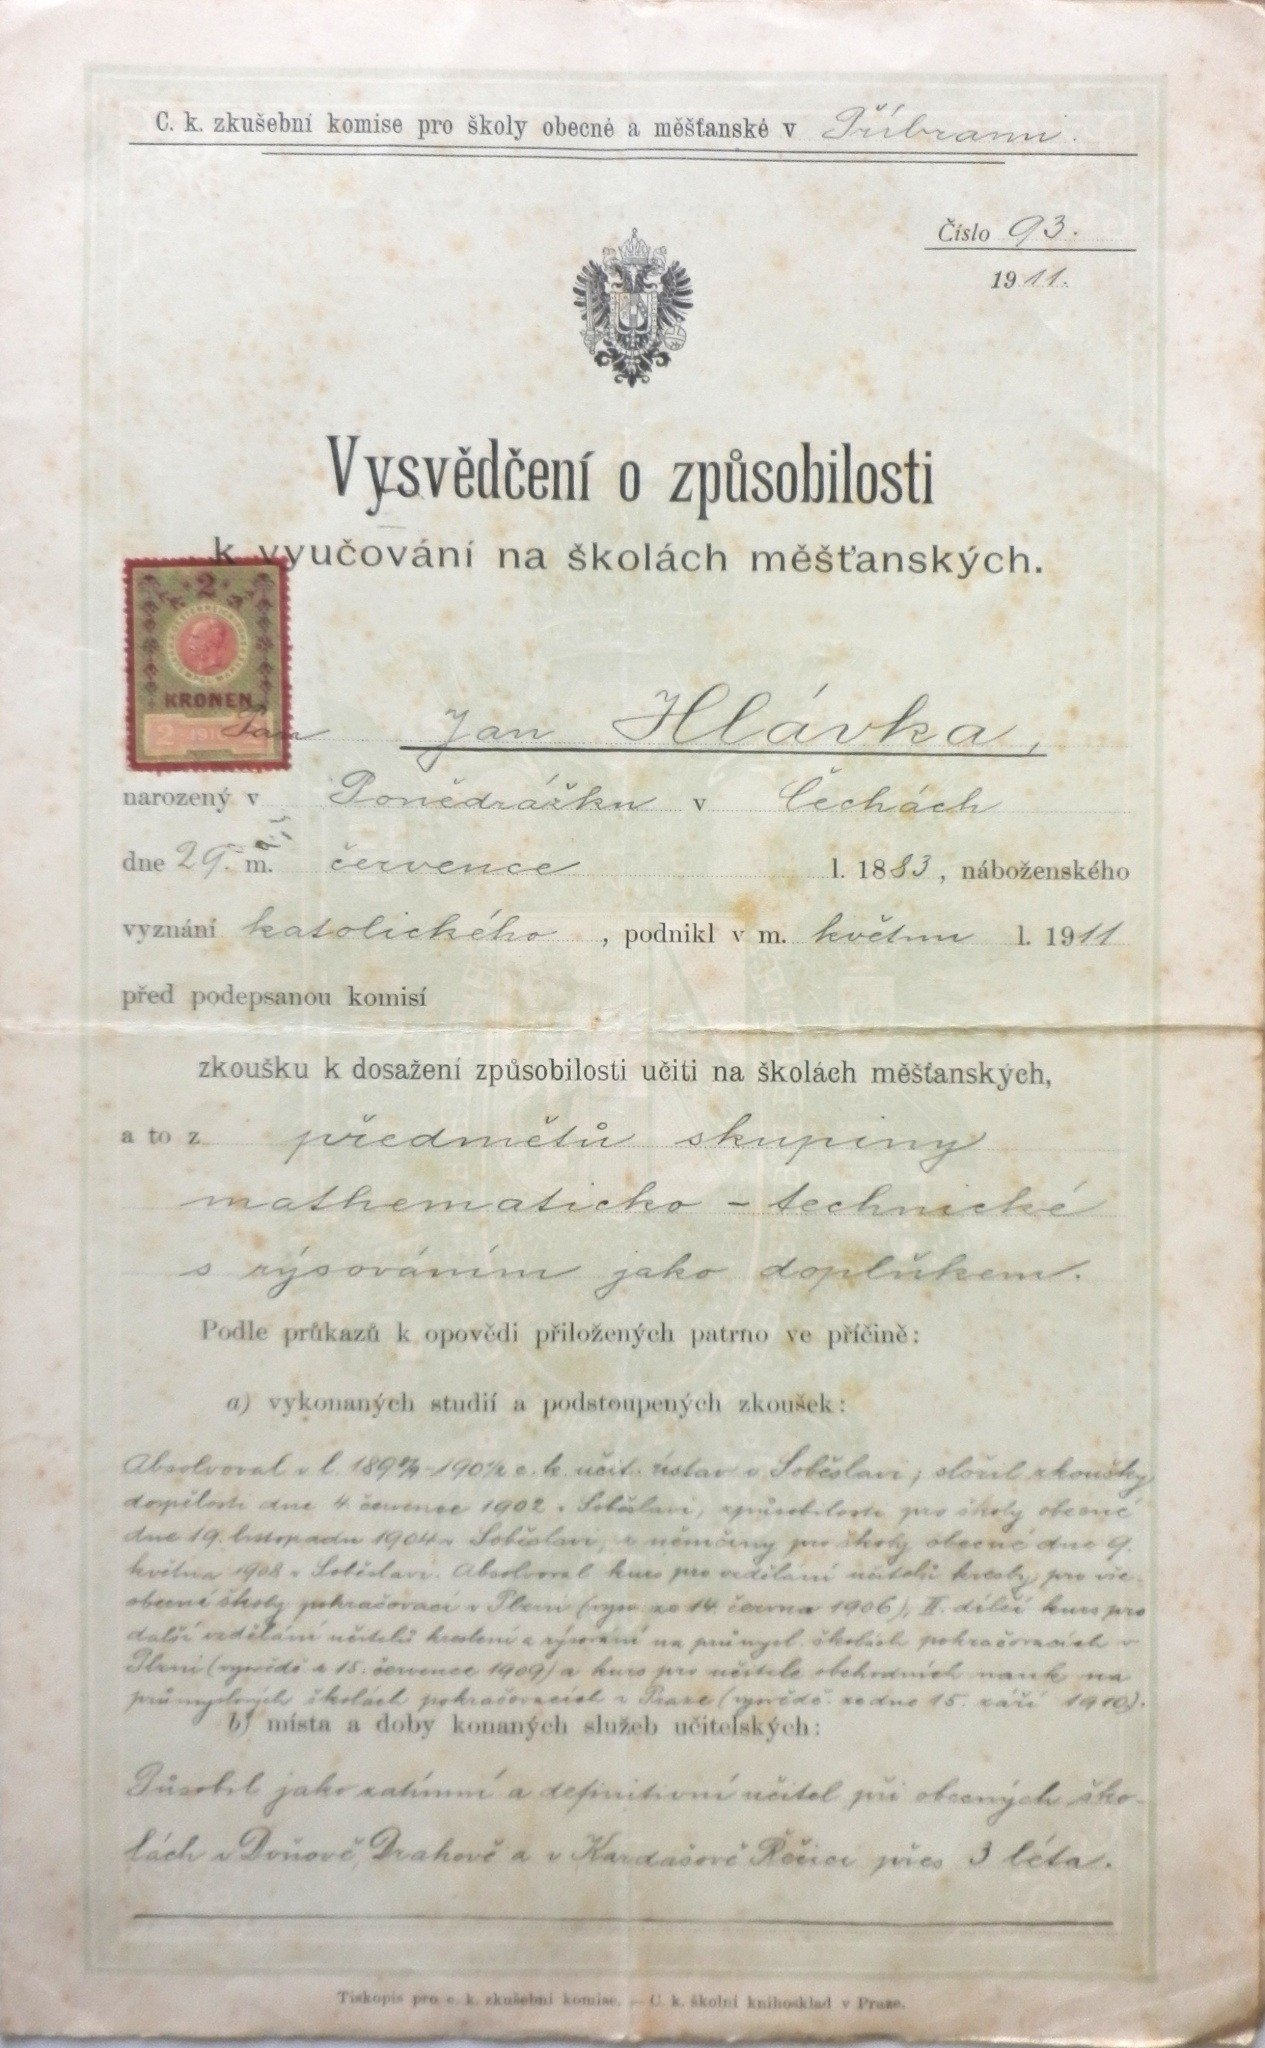 C. k. zkušební komise pro školy obecné a měšťanské v Příbrami.
Číslo 93.
1911.
Vysvědčení o způsobilosti
k vyučování na školách měšťanských.
2
KRONEN
2 191
Pan Jan Hlávka,
narozený v Ponědrážku v Čechách
dne 29. m. července l. 1883, náboženského
vyznání katolického, podnikl v m. květnu l. 1911
před podepsanou komisí
zkoušku k dosažení způsobilosti učiti na školách měšťanských,
a to z předmětů skupiny
mathematicko-technické
s rýsováním jako doplňkem.
Podle průkazů k opovědi přiložených patrno ve příčině:
a) vykonaných studií a podstoupených zkoušek:
Absolvoval v l. 1898/9-1901/2 c. k. učit. ústav v Soběslavi; složil zkoušky
dospělosti dne 4. července 1902 v Soběslavi, způsobilosti pro školy obecné
dne 19. listopadu 1904 v Soběslavi, z němčiny pro školy obecné dne 9.
května 1908 v Soběslavi. Absolvoval kurs pro vzdělání učitelů kresby pro vše-
obecné školy pokračovací v Plzni (vysv. ze 14. června 1906), II. dílčí kurs pro
další vzdělání učitelů kreslení a rýsování na průmysl. školách pokračovacích v
Plzni (vysvědč. z 15. července 1909) a kurs pro učitele obchodních nauk na
průmyslových školách pokračovacích v Praze (vysvědč. ze dne 15. září 1910).
b) místa a doby konaných služeb učitelských:
Působil jako zatímní a definitivní učitel při obecných ško-
lách v Dvůově, Drahově a v Kardašově Řečici přes 3 léta.
Tiskopis pro c. k. zkušební komise. — C. k. školní knihosklad v Praze.